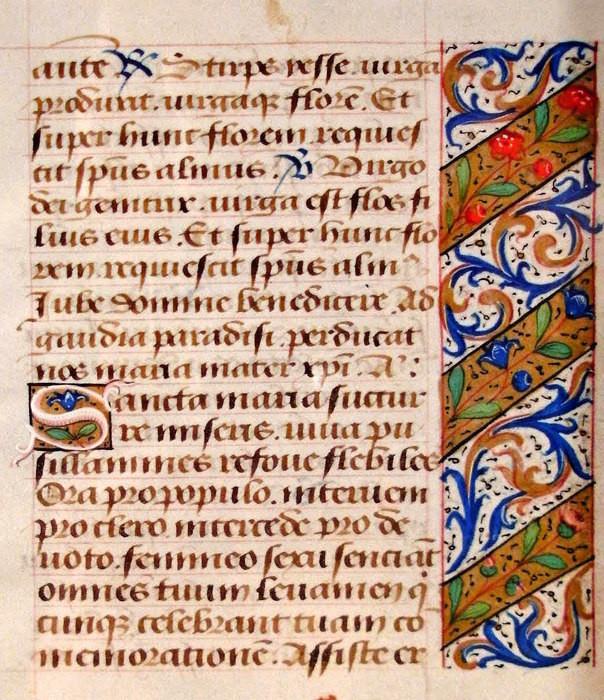 ante ℟ Stirps yesse virga
produxit. virgaq; florē. Et
super hunc florem requies
cit spūs almus. ℣ Virgo
dei genitrix. virga est flos fi
lius eius. Et super hunc flo
rem. requiescit spūs alm⁹
Jube domine benedicere. Ad
gaudia paradisi. perducat
nos maria mater xpi. A:
Sancta maria succur
re miseris. iuua pu
sillanimes refoue flebiles
Ora pro populo. interueni
pro clero. intercede pro de
uoto. femineo sexu senciāt
omnes tuum leuamen q̇
cunq; celebrant tuam co
memorationē. Assiste er